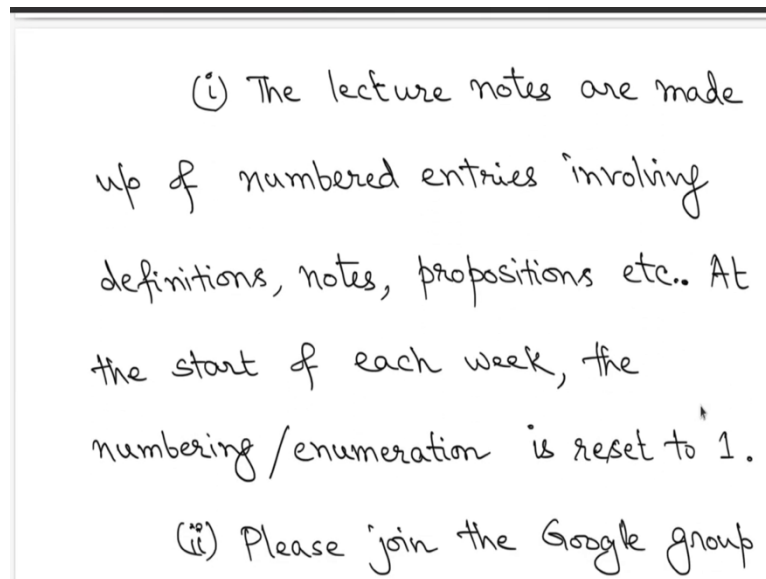 (i) The lecture notes are made
up of numbered entries involving
definitions, notes, propositions etc.. At
the start of each week, the
numbering/enumeration is reset to 1.
(ii) Please join the Google group